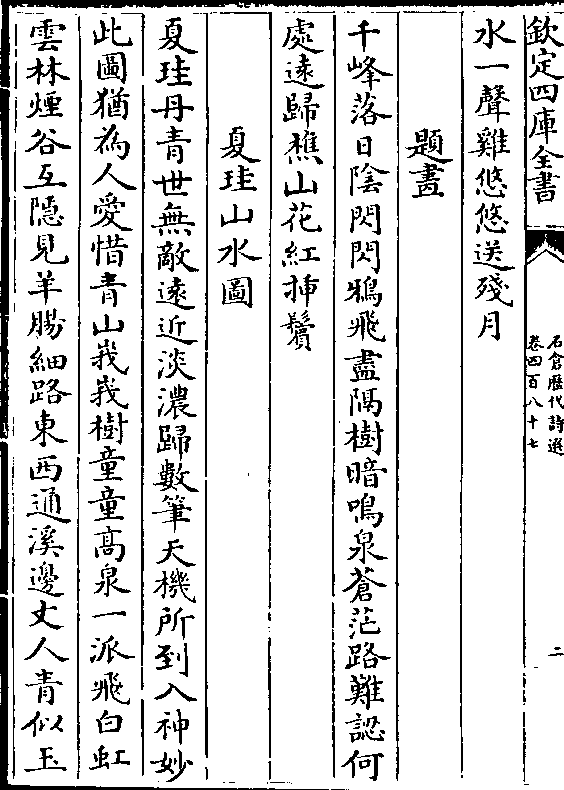 欽定四庫全書
石倉歷代詩選
卷四百八十七
二
水一聲雞悠悠送殘月
題畫
千峰落日陰閃閃鴉飛盡隔樹暗鳴泉蒼茫路難認何
處遠歸樵山花紅揷鬢
夏珪山水圖
夏珪丹青世無敵遠近淡濃歸數筆天機所到入神妙
此圖猶為人愛惜青山峩峩樹童童高泉一派飛白虹
雲林煙谷互隱見羊腸細路東西通溪邊丈人青似玉